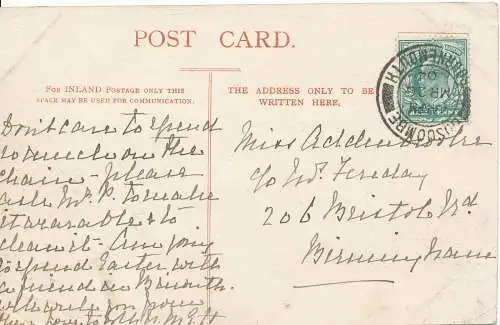 POST CARD.
FOR INLAND POSTAGE ONLY THIS
SPACE MAY BE USED FOR COMMUNICATION.
THE ADDRESS ONLY TO BE
WRITTEN HERE.
BOURNEMOUTH
BOSCOMBE
MR 26
04
Don't care to spend
too much on the
chain - please
ask Mr P. to make
it wearable & to
clean it - Am going
to spend Easter with
a friend in B'mouth
will write you from
there love to all
Miss Addenbrooke
c/o Mrs. Fereday
206 Bristol Rd
Birmingham